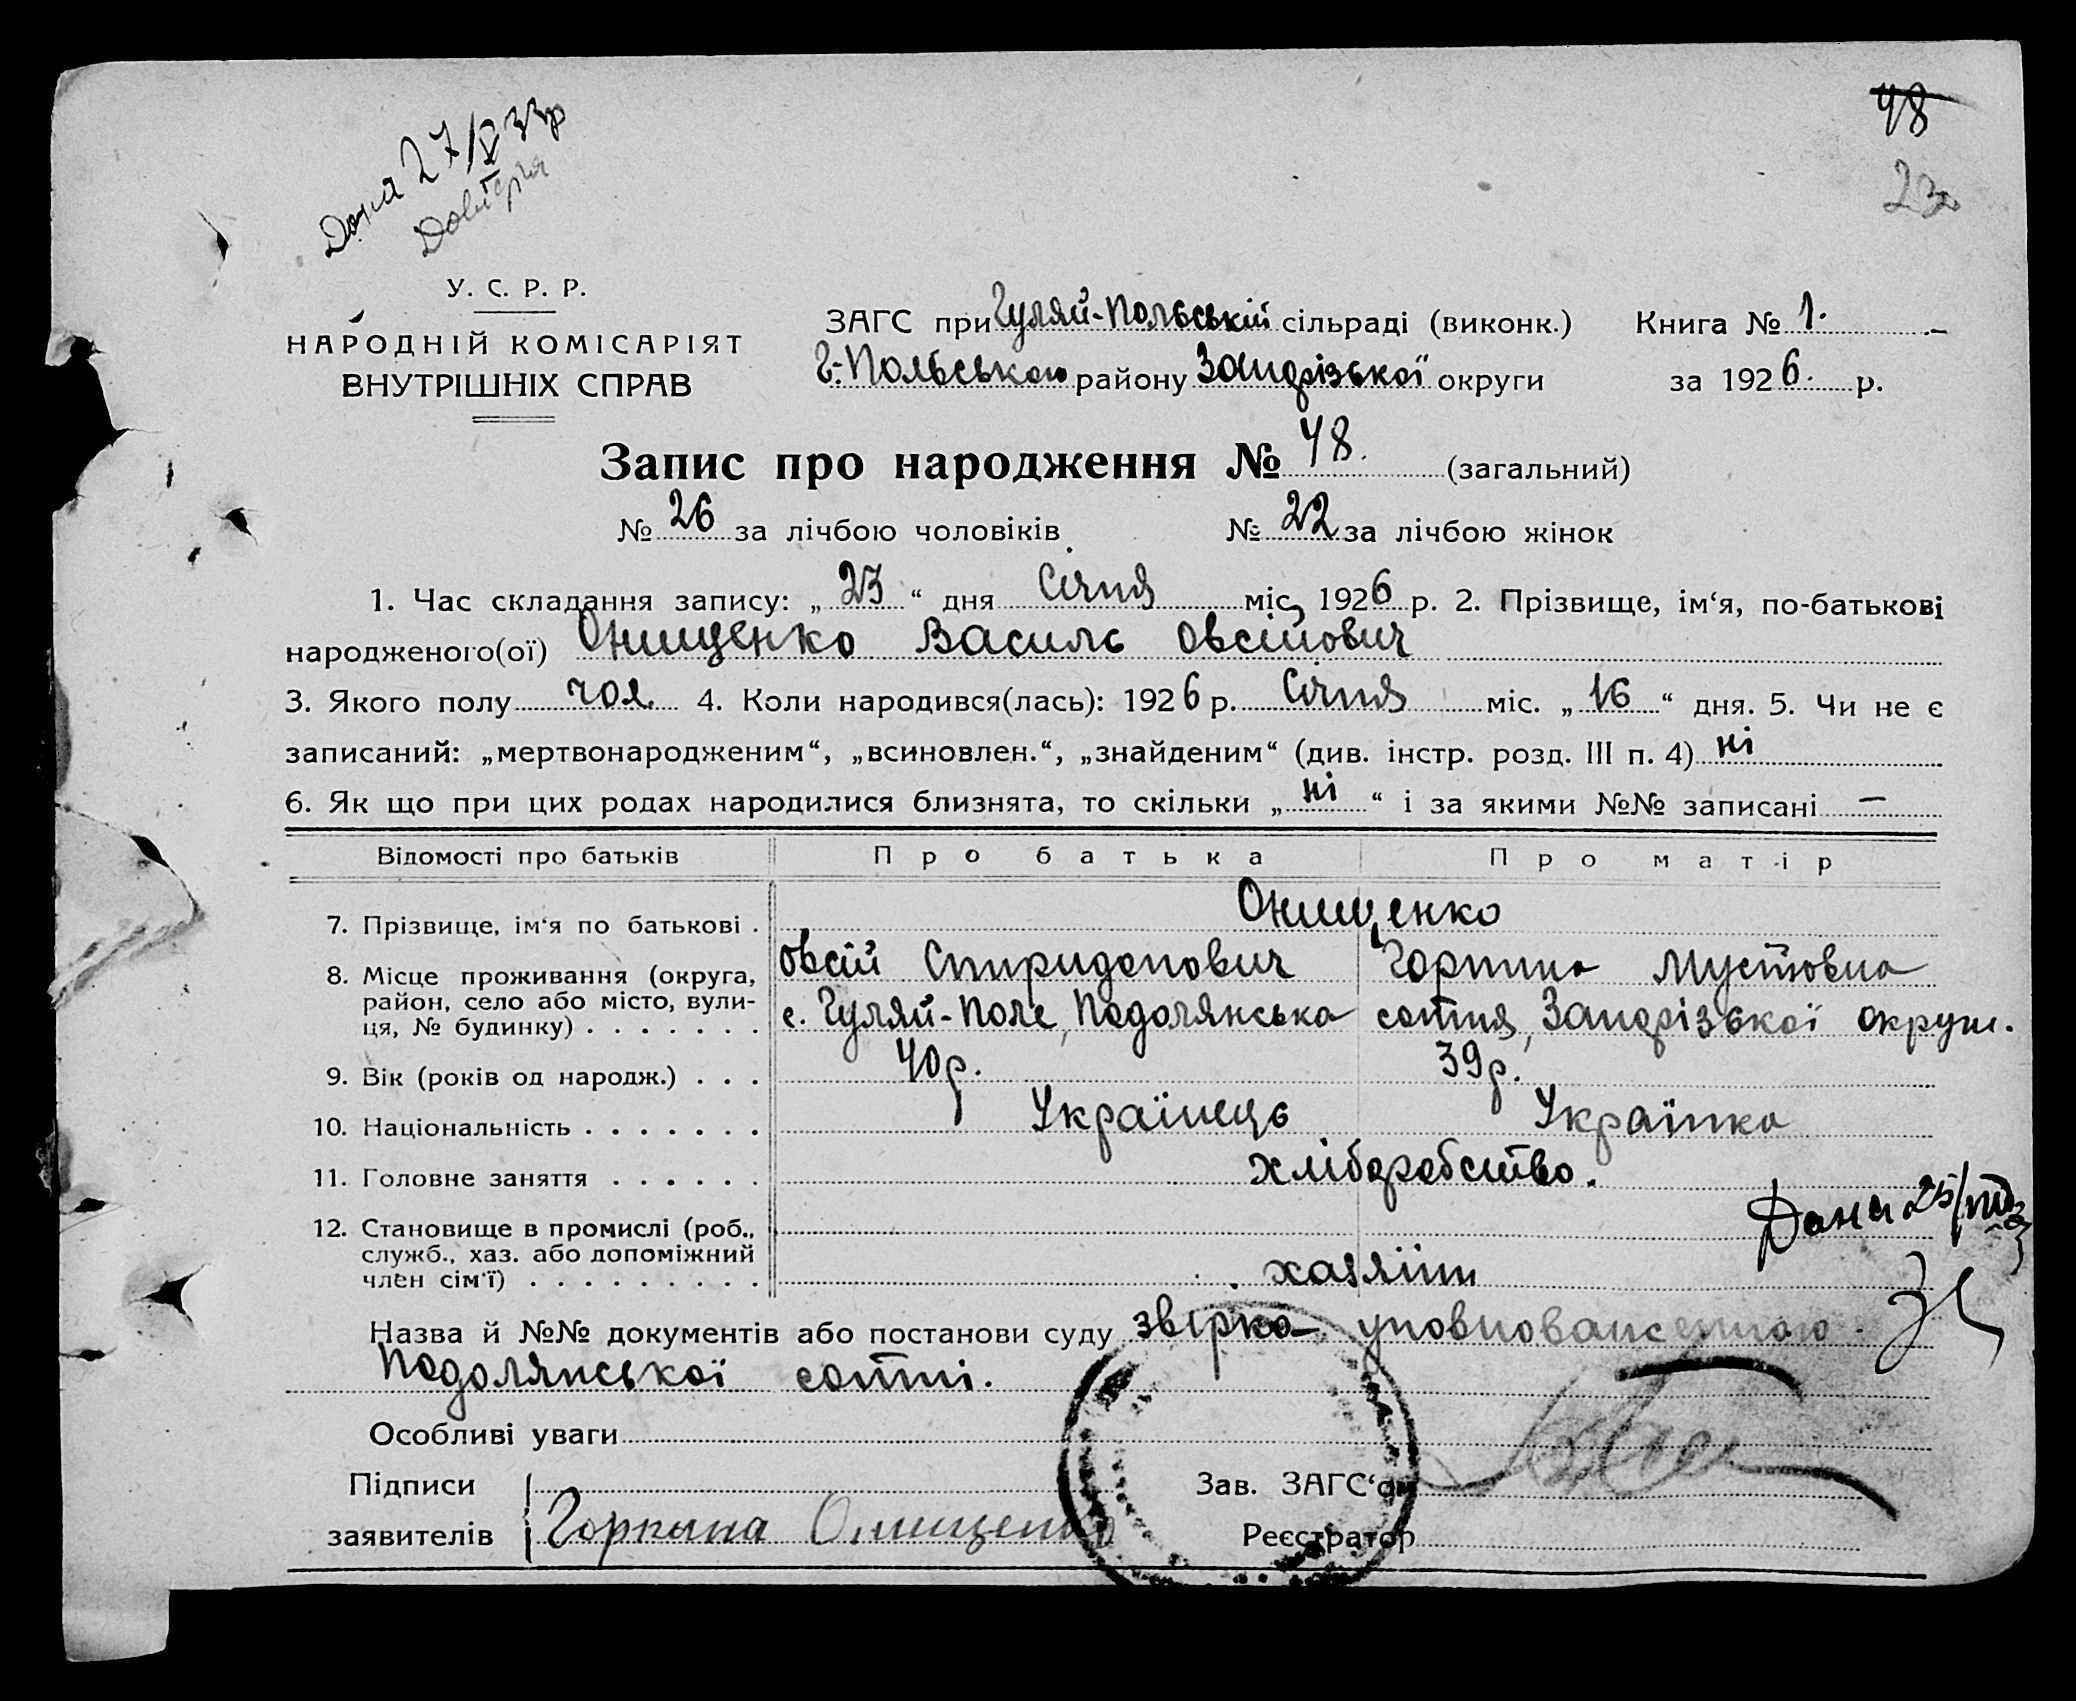 48
23
Дана 27/V 33р
У. С. Р. Р.
НАРОДНІЙ КОМІСАРІЯТ
ВНУТРІШНІХ СПРАВ
ЗАГС при Гуляй-Польській сільраді (виконк.) Книга № 1.
Г.-Польського району Запорізької округи за 1926. р.
Запис про народження № 48. (загальний)
№ 26 за лічбою чоловіків № 22 за лічбою жінок
1. Час складання запису: „23“ дня Січня міс. 1926 р. 2. Прізвище, ім‘я, по-батькові
народженого(ої) Онищенко Василь Овсійович
3. Якого полу чол. 4. Коли народився(лась): 1926 р. Січня міс. „16“ дня. 5. Чи не є
записаний: „мертвонародженим“, „всиновлен.“, „знайденим“ (див. інстр. розд. III п. 4) ні
6. Як що при цих родах народилися близнята, то скільки „ні“ і за якими №№ записані —
Відомості про батьків Про батька Про матір
7. Прізвище, ім‘я по батькові . Онищенко
Овсій Спиридонович Горпина Мустовна
8. Місце проживання (округа, район, село або місто, вулиця, № будинку) . . . . . . . с. Гуляй-Поле, Подолянська сотня, Запорізької округи.
9. Вік (років од народж.) . . . 40р. 39р.
10. Національність . . . . . . . Українець Українка
11. Головне заняття . . . . . . хліборобство.
12. Становище в промислі (роб., служб., хаз. або допоміжний член сім‘ї) . . . . . . . . . хазяїни
Дана 25/VIII
Назва й №№ документів або постанови суду звірка уповноваженного
Подолянської сотні.
Особливі уваги
Підписи
заявителів Горпына Онищенко
Зав. ЗАГС‘ом
Реєстратор